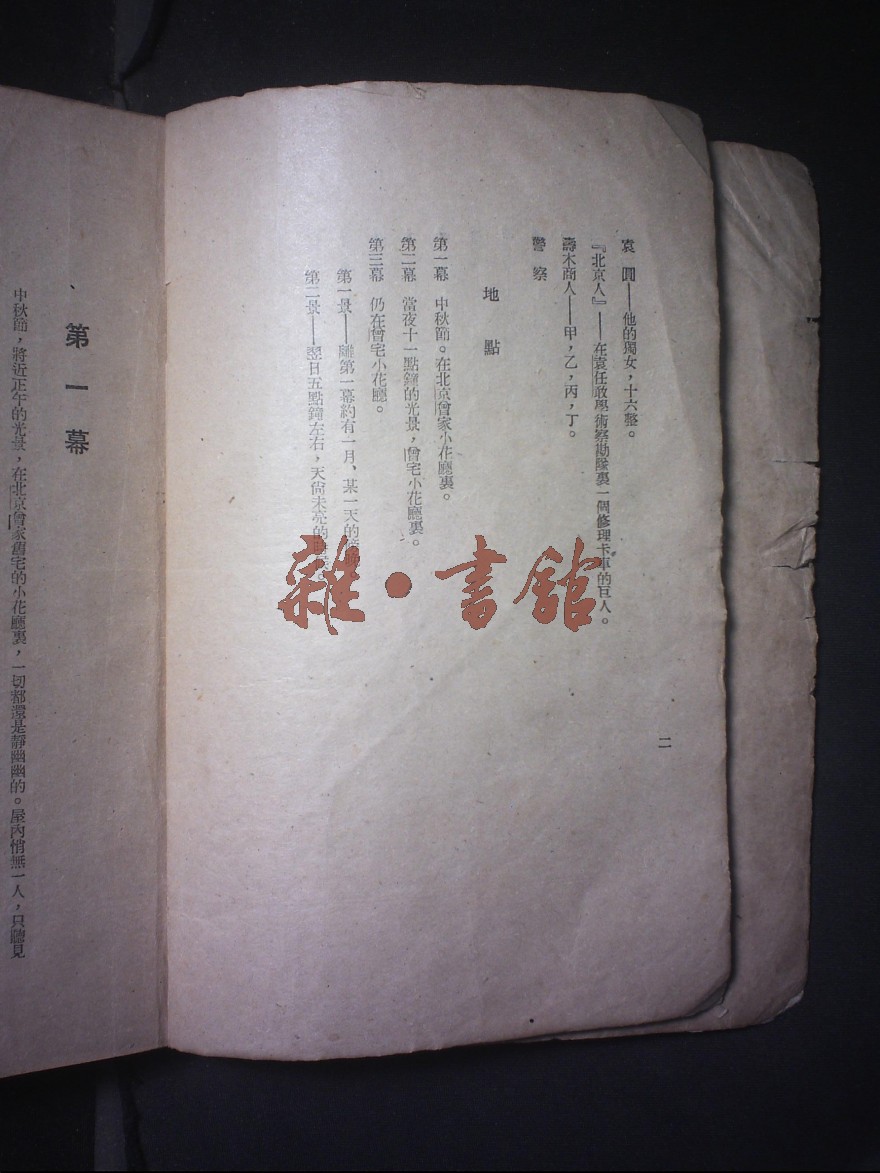 袁　圓——他的獨女，十六整。
『北京人』——在袁任敢學術察勘隊裏一個修理卡車的巨人。
壽木商人——甲，乙，丙，丁。
警　察
地　點
第一幕　中秋節。在北京曾家小花廳裏。
第二幕　當夜十一點鐘的光景，曾宅小花廳裏。
第三幕　仍在曾宅小花廳。
第一景——離第一幕約有一月、某一天的
第二景——翌日五點鐘左右，天尙未亮的
二
第一幕
中秋節，將近正午的光景，在北京曾家舊宅的小花廳裏，一切都還是靜幽幽的。屋內悄無一人，只聽見
雜·書館